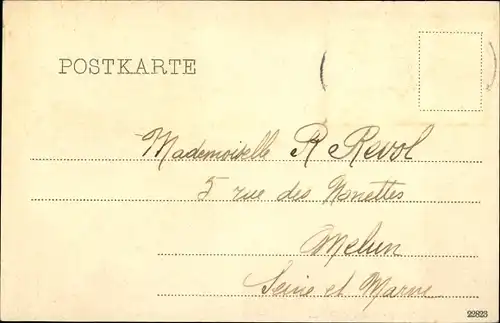 POSTKARTE
Mademoiselle R Revol
5 rue des Nonettes
Melun
Seine et Marne
22823